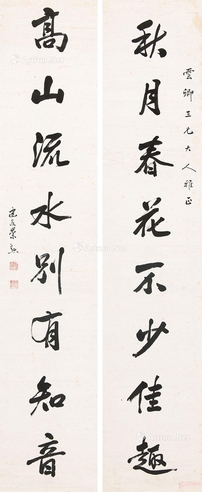 雲卿五兄大人雅正
秋月春花不少佳趣
高山流水別有知音